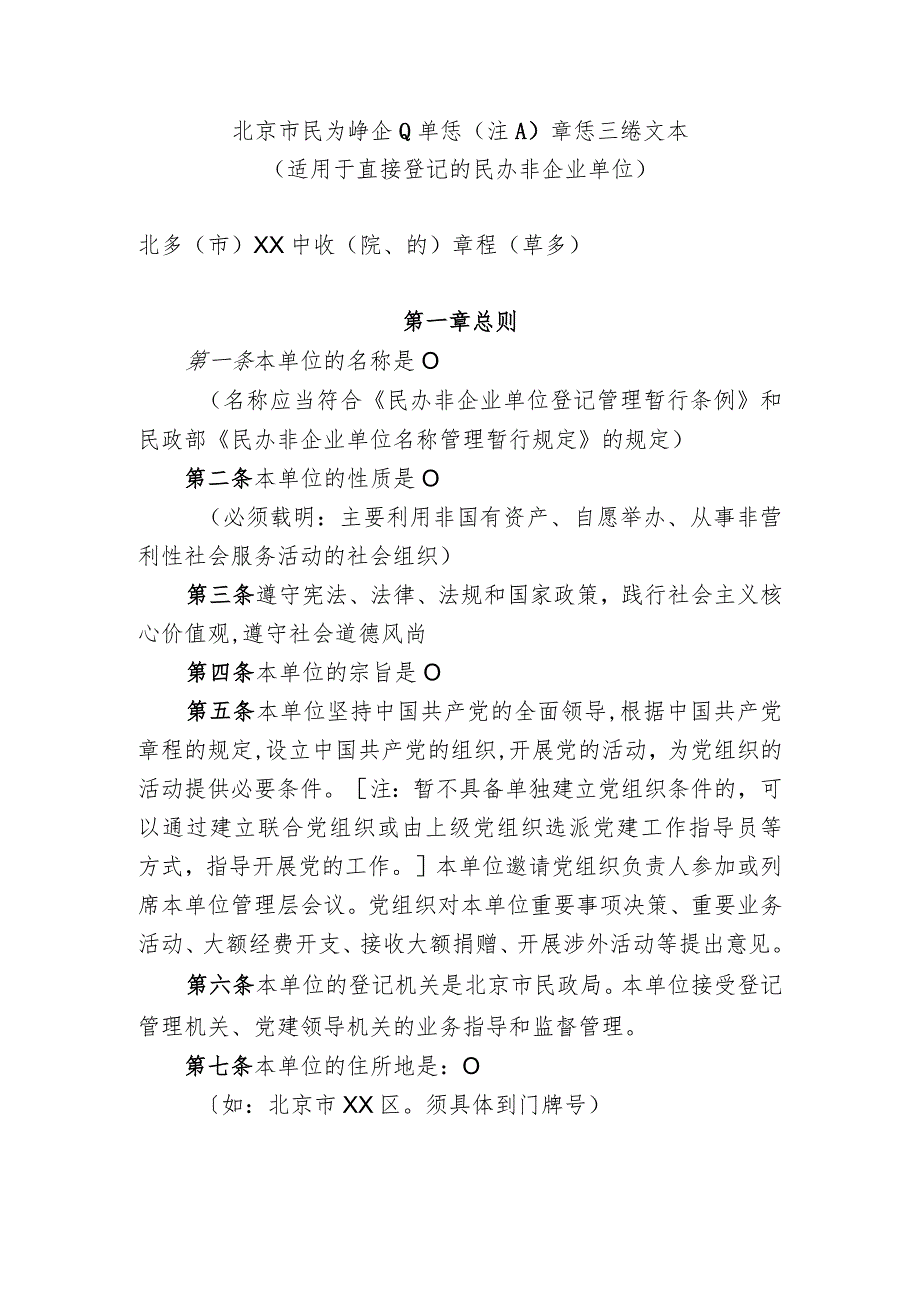 北京市民为峥企Q单恁（注A）章恁三绻文本
（适用于直接登记的民办非企业单位）
北多（市）XX中收（院、的）章程（草多）
第一章总则
第一条本单位的名称是O
（名称应当符合《民办非企业单位登记管理暂行条例》和
民政部《民办非企业单位名称管理暂行规定》的规定）
第二条本单位的性质是O
（必须载明：主要利用非国有资产、自愿举办、从事非营
利性社会服务活动的社会组织）
第三条遵守宪法、法律、法规和国家政策，践行社会主义核
心价值观,遵守社会道德风尚
第四条本单位的宗旨是O
第五条本单位坚持中国共产党的全面领导,根据中国共产党
章程的规定,设立中国共产党的组织,开展党的活动，为党组织的
活动提供必要条件。［注：暂不具备单独建立党组织条件的，可
以通过建立联合党组织或由上级党组织选派党建工作指导员等
方式，指导开展党的工作。］本单位邀请党组织负责人参加或列
席本单位管理层会议。党组织对本单位重要事项决策、重要业务
活动、大额经费开支、接收大额捐赠、开展涉外活动等提出意见。
第六条本单位的登记机关是北京市民政局。本单位接受登记
管理机关、党建领导机关的业务指导和监督管理。
第七条本单位的住所地是：O
〔如：北京市XX区。须具体到门牌号）